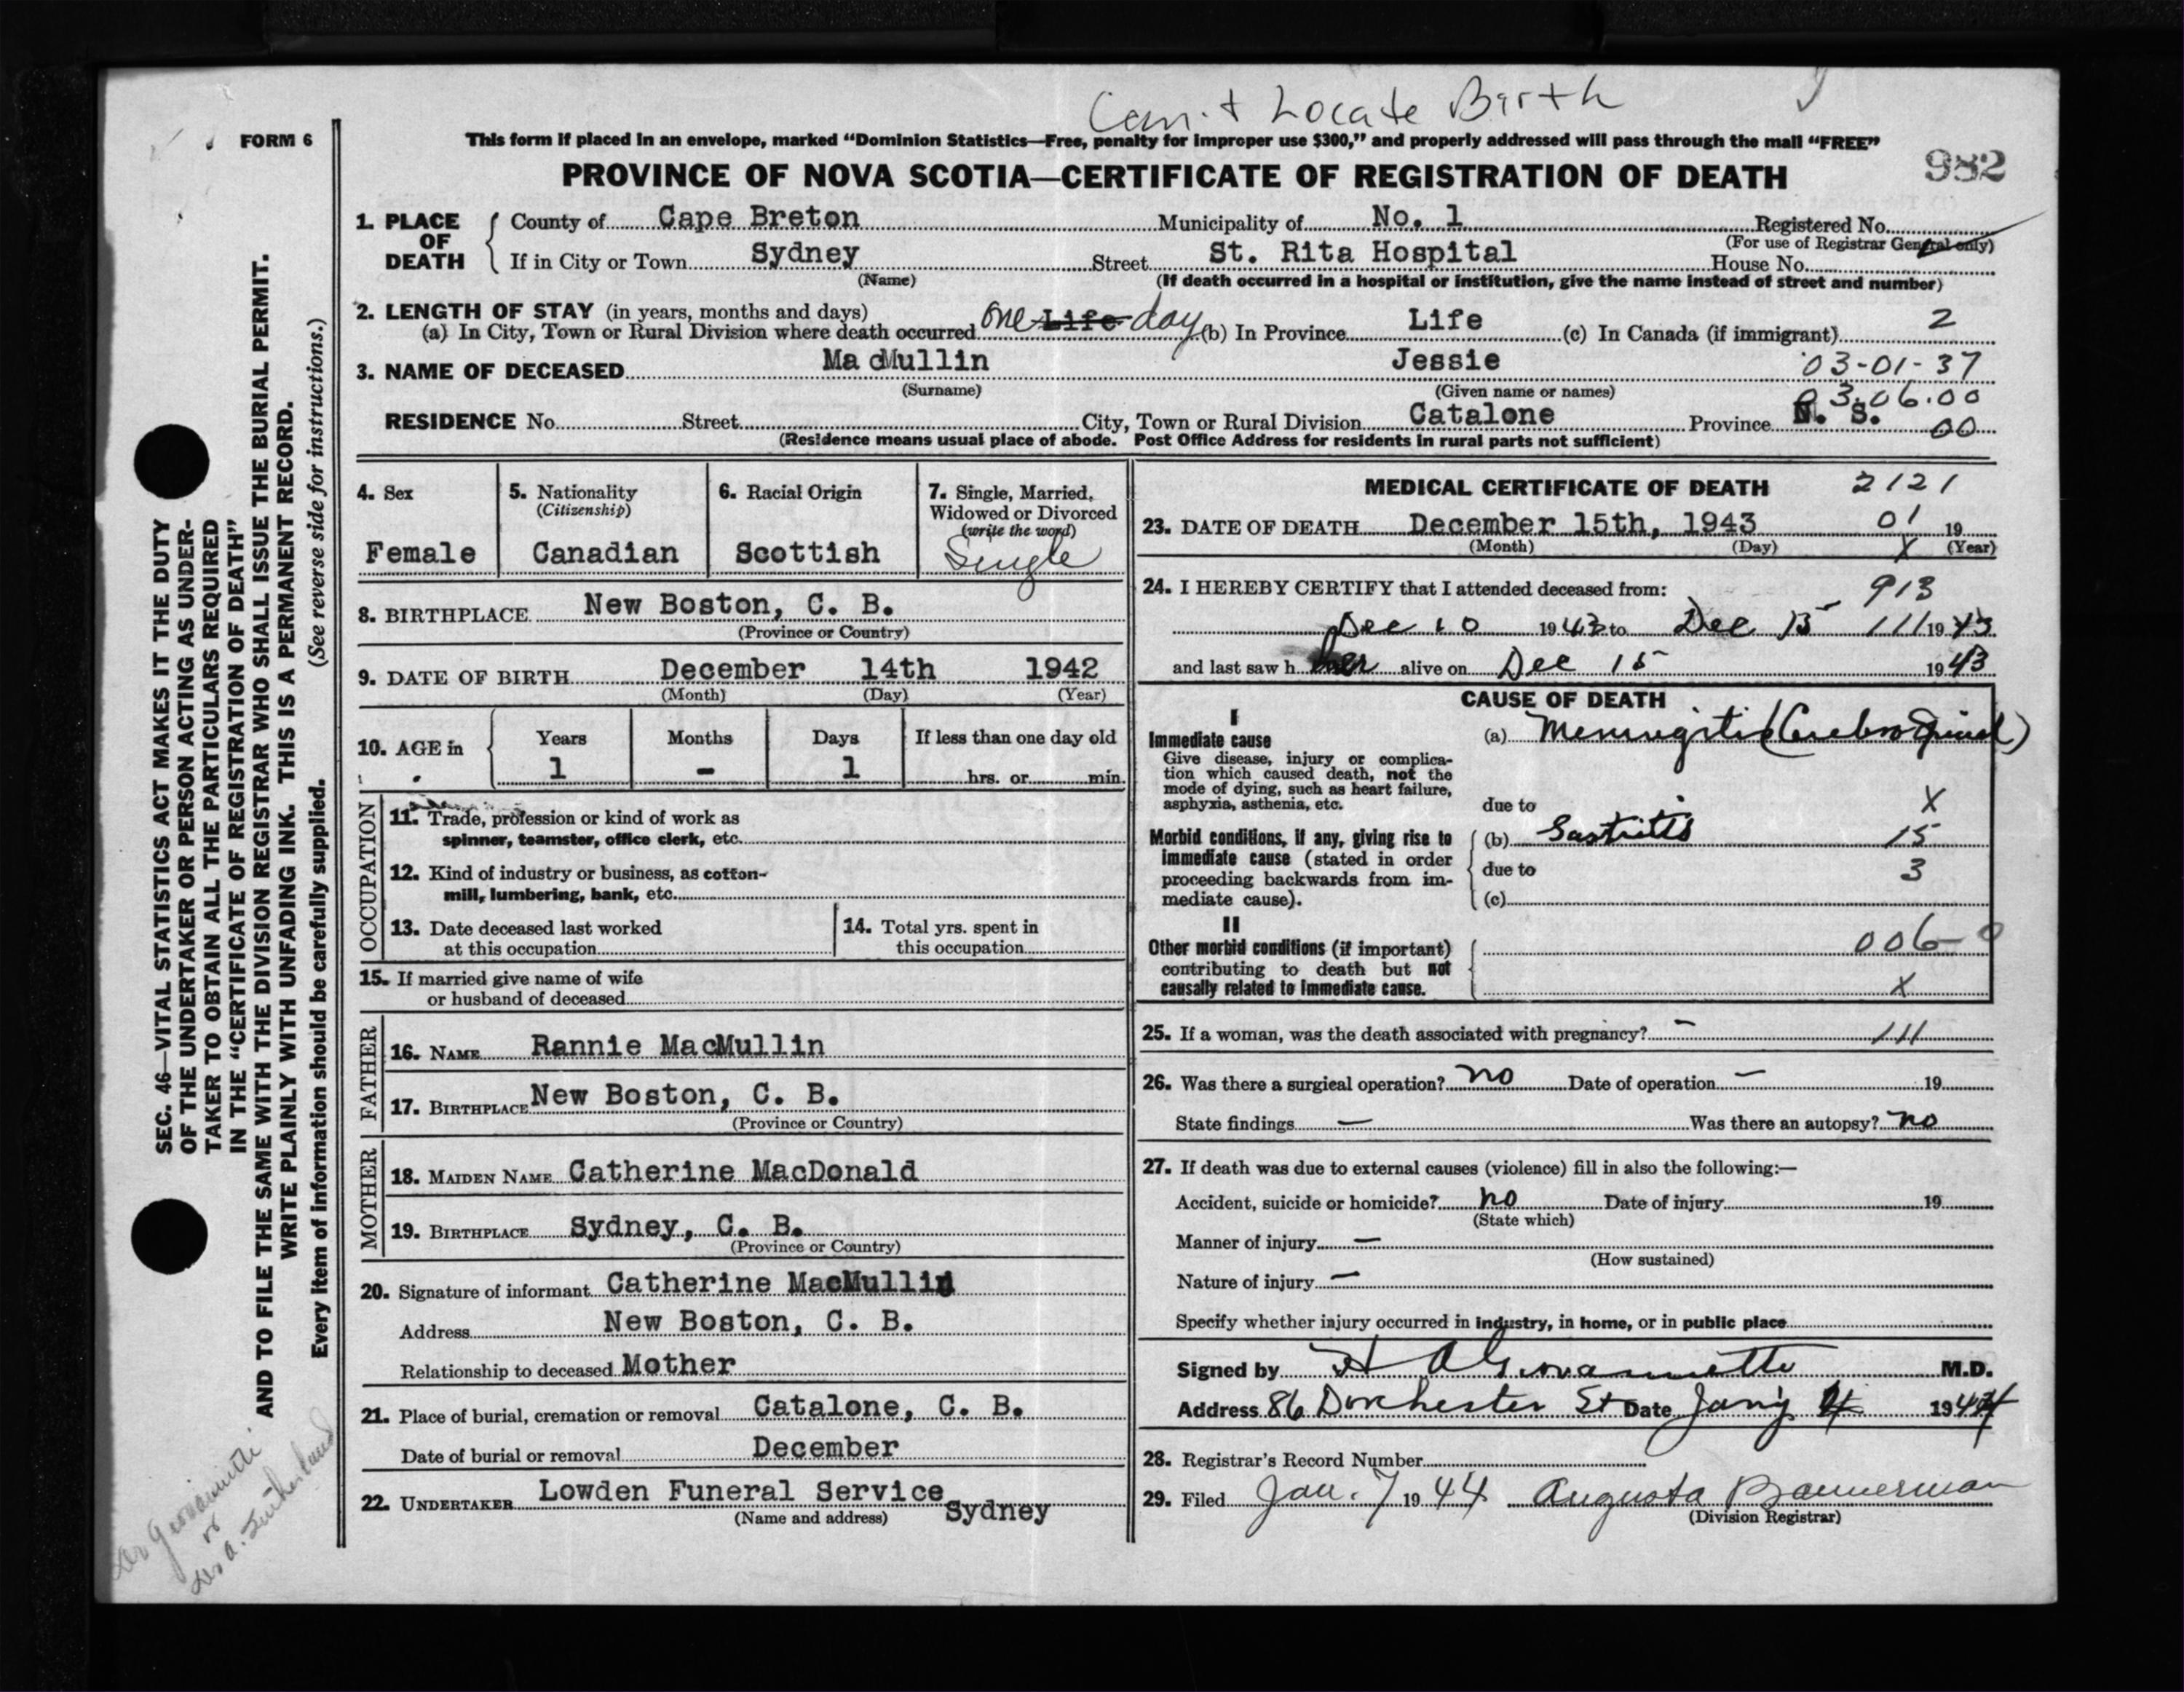 Can't Locate Birth
FORM 6
This form if placed in an envelope, marked "Dominion Statistics—Free, penalty for improper use $300," and properly addressed will pass through the mail "FREE"
PROVINCE OF NOVA SCOTIA—CERTIFICATE OF REGISTRATION OF DEATH
982
1. PLACE OF DEATH County of Cape Breton Municipality of No. 1 Registered No.
(For use of Registrar General only)
If in City or Town Sydney Street St. Rita Hospital House No.
(Name) (If death occurred in a hospital or institution, give the name instead of street and number)
2. LENGTH OF STAY (in years, months and days)
(a) In City, Town or Rural Division where death occurred one Life day (b) In Province Life (c) In Canada (if immigrant) 2
3. NAME OF DECEASED MacMullin Jessie 03-01-37
(Surname) (Given name or names) 03.06.00
RESIDENCE No. Street City, Town or Rural Division Catalone Province N. S. 00
(Residence means usual place of abode. Post Office Address for residents in rural parts not sufficient)
4. Sex
Female
5. Nationality
(Citizenship)
Canadian
6. Racial Origin
Scottish
7. Single, Married, Widowed or Divorced
(write the word)
Single
8. BIRTHPLACE New Boston, C. B.
(Province or Country)
9. DATE OF BIRTH December 14th 1942
(Month) (Day) (Year)
10. AGE in Years Months Days If less than one day old
1 - 1 hrs. or min.
OCCUPATION
11. Trade, profession or kind of work as
spinner, teamster, office clerk, etc.
12. Kind of industry or business, as cotton-
mill, lumbering, bank, etc.
13. Date deceased last worked
at this occupation
14. Total yrs. spent in
this occupation
15. If married give name of wife
or husband of deceased
FATHER
16. NAME Rannie MacMullin
17. BIRTHPLACE New Boston, C. B.
(Province or Country)
MOTHER
18. MAIDEN NAME Catherine MacDonald
19. BIRTHPLACE Sydney, C. B.
(Province or Country)
20. Signature of informant Catherine MacMullin
Address New Boston, C. B.
Relationship to deceased Mother
21. Place of burial, cremation or removal Catalone, C. B.
Date of burial or removal December
22. UNDERTAKER Lowden Funeral Service Sydney
(Name and address)
MEDICAL CERTIFICATE OF DEATH 2121
23. DATE OF DEATH December 15th, 1943 01 19
(Month) (Day) X (Year)
24. I HEREBY CERTIFY that I attended deceased from: 913
Dec 10 1943 to Dec 15 111 1943
and last saw h her alive on Dec 15 1943
CAUSE OF DEATH
I
Immediate cause
Give disease, injury or complica-
tion which caused death, not the
mode of dying, such as heart failure,
asphyxia, asthenia, etc.
(a) Meningitis (Cerebro Spinal)
due to X
Morbid conditions, if any, giving rise to
immediate cause (stated in order
proceeding backwards from im-
mediate cause).
(b) Gastritis 15
due to 3
(c)
II
Other morbid conditions (if important)
contributing to death but not
causally related to immediate cause.
006-0
X
25. If a woman, was the death associated with pregnancy? - 111
26. Was there a surgical operation? no Date of operation - 19
State findings - Was there an autopsy? no
27. If death was due to external causes (violence) fill in also the following:—
Accident, suicide or homicide? no Date of injury 19
(State which)
Manner of injury -
(How sustained)
Nature of injury -
Specify whether injury occurred in industry, in home, or in public place
Signed by H A Giovannetti M.D.
Address 86 Dorchester St Date Jan'y 4 1944
28. Registrar's Record Number
29. Filed Jan. 7 1944 Augusta Bannerman
(Division Registrar)
SEC. 46—VITAL STATISTICS ACT MAKES IT THE DUTY
OF THE UNDERTAKER OR PERSON ACTING AS UNDER-
TAKER TO OBTAIN ALL THE PARTICULARS REQUIRED
IN THE "CERTIFICATE OF REGISTRATION OF DEATH"
AND TO FILE THE SAME WITH THE DIVISION REGISTRAR WHO SHALL ISSUE THE BURIAL PERMIT.
WRITE PLAINLY WITH UNFADING INK. THIS IS A PERMANENT RECORD.
Every item of information should be carefully supplied. (See reverse side for instructions.)
Dr Giovannetti
or
Dr A. Sutherland